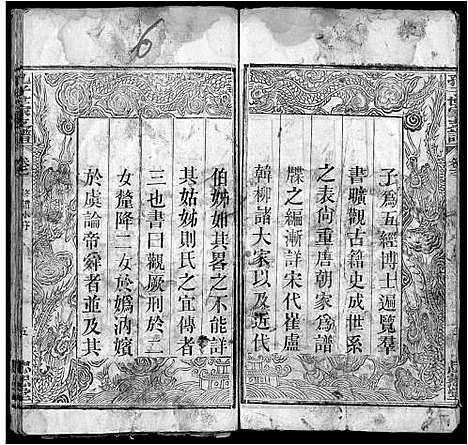 予為五經博士遍覽羣
書曠觀古籍史成世系
之表尚重唐朝家為譜
牒之編漸詳宋代崔盧
韓柳諸大家以及近代
伯姊如其畧之不能詳
其姑姊則氏之宜傳者
三也書曰觀厥刑於二
女釐降二女於媯汭嬪
於虞論帝舜者並及其
五
6